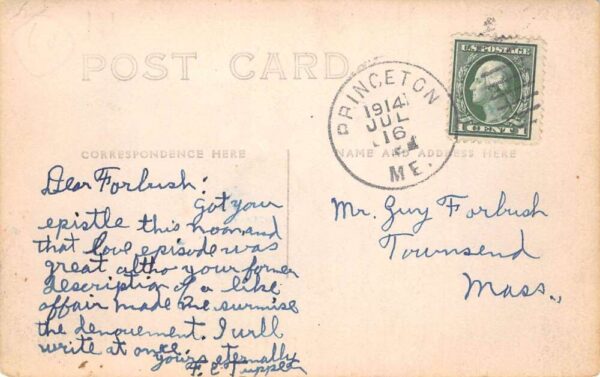 POST CARD
PRINCETON
1914
JUL
16
ME
U.S. POSTAGE
1 CENT 1
CORRESPONDENCE HERE
NAME AND ADDRESS HERE
Dear Forbush:
Got your
epistle this noon and
that love episode was
great altho your former
description of a like
affair made me surmise
the denouement. I will
write at once.
yours eternally
F. C. Tupper
Mr. Guy Forbush
Townsend
Mass.,